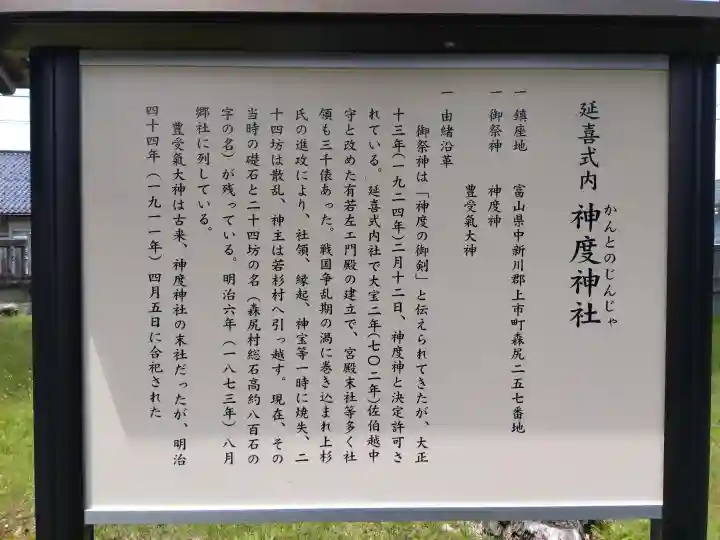 延喜式内 神度神社
かんとのじんじゃ
一 鎮座地 富山県中新川郡上市町森尻二五七番地
一 御祭神 神度神
豊受氣大神
一 由緒沿革
御祭神は「神度の御剣」と伝えられてきたが、大正
十三年(一九二四年)二月十二日、神度神と決定許可さ
れている。延喜式内社で大宝二年(七〇二年)佐伯越中
守と改めた有若左エ門殿の建立で、宮殿末社等多く社
領も三千俵あった。戦国争乱期の渦に巻き込まれ上杉
氏の進攻により、社領、縁起、神宝等一時に焼失、二
十四坊は散乱、神主は若杉村へ引っ越す。現在、その
当時の礎石と二十四坊の名(森尻村総石高約八百石の
字の名)が残っている。明治六年(一八七三年)八月
郷社に列している。
豊受氣大神は古来、神度神社の末社だったが、明治
四十四年(一九一一年)四月五日に合祀された